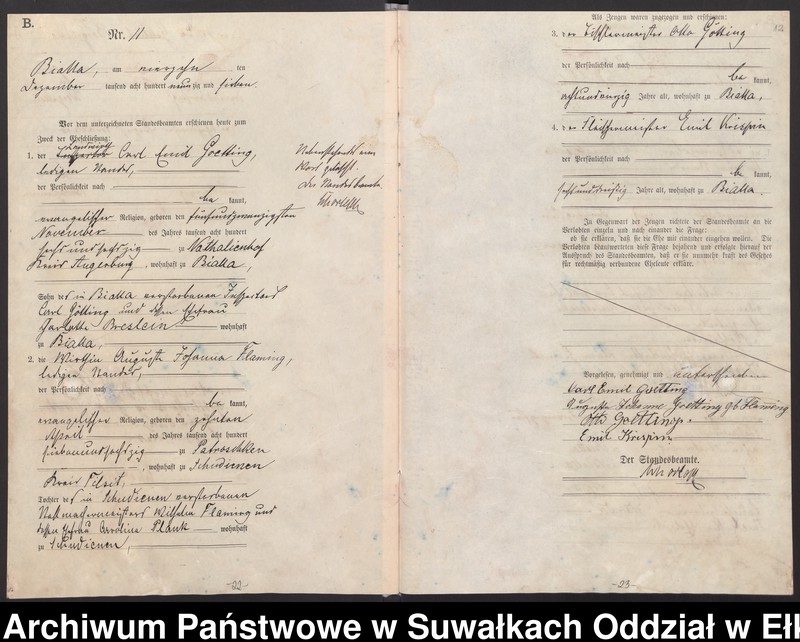 B.
Nr. 11
Bialla, am vierzehn ten
Dezember tausend acht hundert neunzig und sieben.
Vor dem unterzeichneten Standesbeamten erschienen heute zum
Zweck der Eheschließung:
Landwirth
1. der Carl Emil Goetting,
ledigen Standes,
der Persönlichkeit nach
be kannt,
evangelischer Religion, geboren den fünfundzwanzigsten
November des Jahres tausend acht hundert
sechsundsechszig zu Walhallenhof
Kreis Angerburg, wohnhaft zu Bialla,
Sohn des in Bialla verstorbenen Inspectors
Carl Götting und dessen Ehefrau
Charlotte Breslein wohnhaft
zu Bialla,
2. die Wirthin Auguste Johanna Flaming,
ledigen Standes,
der Persönlichkeit nach
be kannt,
evangelischer Religion, geboren den zehnten
April des Jahres tausend acht hundert
siebenundsechszig zu
, wohnhaft zu Schudienen
Kreis Tilsit,
Tochter des in Schudienen verstorbenen
Wilhelm Flaming und
dessen Ehefrau Caroline Plank wohnhaft
zu Schudienen,
Nebenstehend ein
Wort gelöscht.
Der Standesbeamte.
-22-
Als Zeugen waren zugezogen und erschienen:
12
3. der Tischlermeister Otto Götting
der Persönlichkeit nach
be kannt,
achtundzig Jahre alt, wohnhaft zu Bialla,
4. der Fleischermeister Emil Krispin
der Persönlichkeit nach
be kannt,
sechsunddreißig Jahre alt, wohnhaft zu Bialla.
In Gegenwart der Zeugen richtete der Standesbeamte an die
Verlobten einzeln und nach einander die Frage:
ob sie erklären, daß sie die Ehe mit einander eingehen wollen. Die
Verlobten beantworteten diese Frage bejahend und erfolgte hierauf der
Ausspruch des Standesbeamten, daß er sie nunmehr kraft des Gesetzes
für rechtmäßig verbundene Eheleute erkläre.
Vorgelesen, genehmigt und unterschrieben
Carl Emil Goetting
Auguste Johanne Goetting gb Flaming
Otto Goetting.
Emil Krispin
Der Standesbeamte.
-23-
Archiwum Państwowe w Suwałkach Oddział w Eł